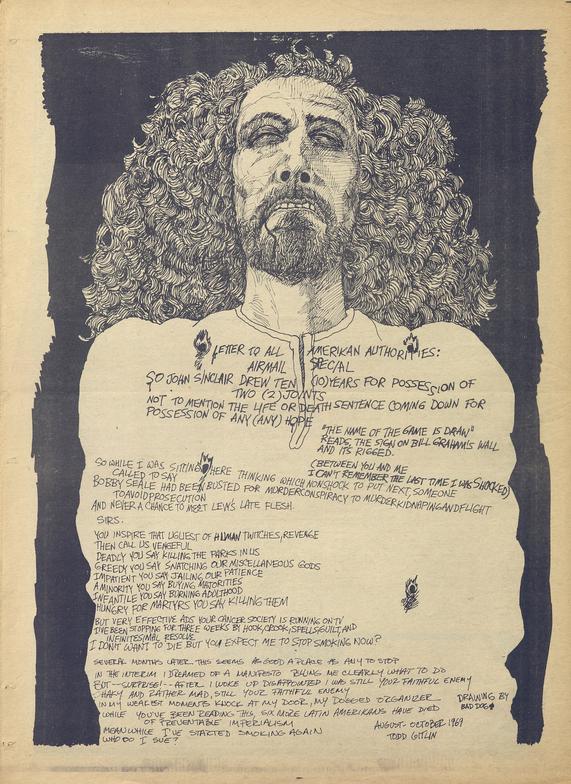 LETTER TO ALL AMERIKAN AUTHORITIES:
AIRMAIL SPECIAL
SO JOHN SINCLAIR DREW TEN (10) YEARS FOR POSSESSION OF
TWO (2) JOINTS
NOT TO MENTION THE LIFE OR DEATH SENTENCE COMING DOWN FOR
POSSESSION OF ANY (ANY) HOPE
"THE NAME OF THE GAME IS DRAW"
READS, THE SIGN ON BILL GRAHAM'S WALL
AND ITS RIGGED.
(BETWEEN YOU AND ME
I CAN'T REMEMBER THE LAST TIME I WAS SHOCKED)
SO WHILE I WAS SITTING HERE THINKING WHICH NONSHOCK TO PUT NEXT, SOMEONE
CALLED TO SAY
BOBBY SEALE HAD BEEN BUSTED FOR MURDERCONSPIRACY TO MURDERKIDNAPINGANDFLIGHT
TOAVOIDPROSECUTION
AND NEVER A CHANCE TO MEET LEW'S LATE FLESH.
SIRS:
YOU INSPIRE THAT UGLIEST OF HUMAN TWITCHES, REVENGE
THEN CALL US VENGEFUL
DEADLY YOU SAY KILLING THE PARKS IN US
GREEDY YOU SAY SNATCHING OUR MISCELLANEOUS GODS
IMPATIENT YOU SAY JAILING OUR PATIENCE
A MINORITY YOU SAY BUYING MAJORITIES
INFANTILE YOU SAY BURNING ADULTHOOD
HUNGRY FOR MARTYRS YOU SAY KILLING THEM
BUT VERY EFFECTIVE ADS YOUR CANCER SOCIETY IS RUNNING ON TV
I'VE BEEN STOPPING FOR THREE WEEKS BY HOOK, CROOK, SPELLS, GUILT, AND
INFINITESIMAL RESOLVE
I DON'T WANT TO DIE BUT YOU EXPECT ME TO STOP SMOKING NOW?
SEVERAL MONTHS LATER THIS SEEMS AS GOOD A PLACE AS ANY TO STOP
IN THE INTERIM I DREAMED OF A MANIFESTO TELLING ME CLEARLY WHAT TO DO
BUT--SURPRISE!--AFTER I WOKE UP DISAPPOINTED I WAS STILL YOUR FAITHFUL ENEMY
SHAKY AND RATHER MAD, STILL YOUR FAITHFUL ENEMY
IN MY WEAKEST MOMENTS KNOCK AT MY DOOR, MY DOGGED ORGANIZER
WHILE YOU'VE BEEN READING THIS, SIX MORE LATIN AMERIKANS HAVE DIED
OF PREVENTABLE IMPERIALISM
MEANWHILE I'VE STARTED SMOKING AGAIN
WHO DO I SUE?
DRAWING BY
BAD DOG
AUGUST-OCTOBER 1969
TODD GITLIN